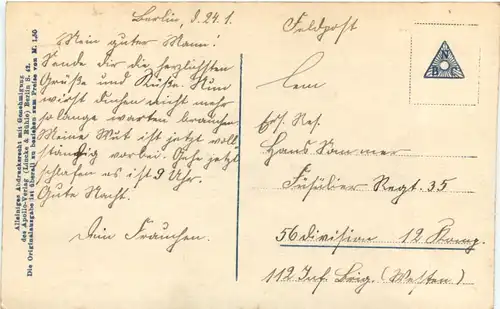 Berlin, d. 24.1.
Mein guter Mann!
Sende dir die herzlichsten
Grüße und Küße. Nun
wirst Du schon nicht mehr
so lange warten brauchen
Meine Wut ist jetzt voll
ständig vorbei. Gehe jetzt
schlafen es ist 9 Uhr.
Gute Nacht.
Dein Frauchen.
Feldpost
Ers. Res.
Hans Sommer
Füsilier Regt. 35
56 division 12 Komp.
112 Inf. Brig. (Westen)
Alleiniges Andrucksrecht mit Genehmigung
des Apollo-Verlag (Lösche & Rühle) Berlin S. 42.
Die Originalausgabe ist überall zu beziehen zum Preise von M. 1,50